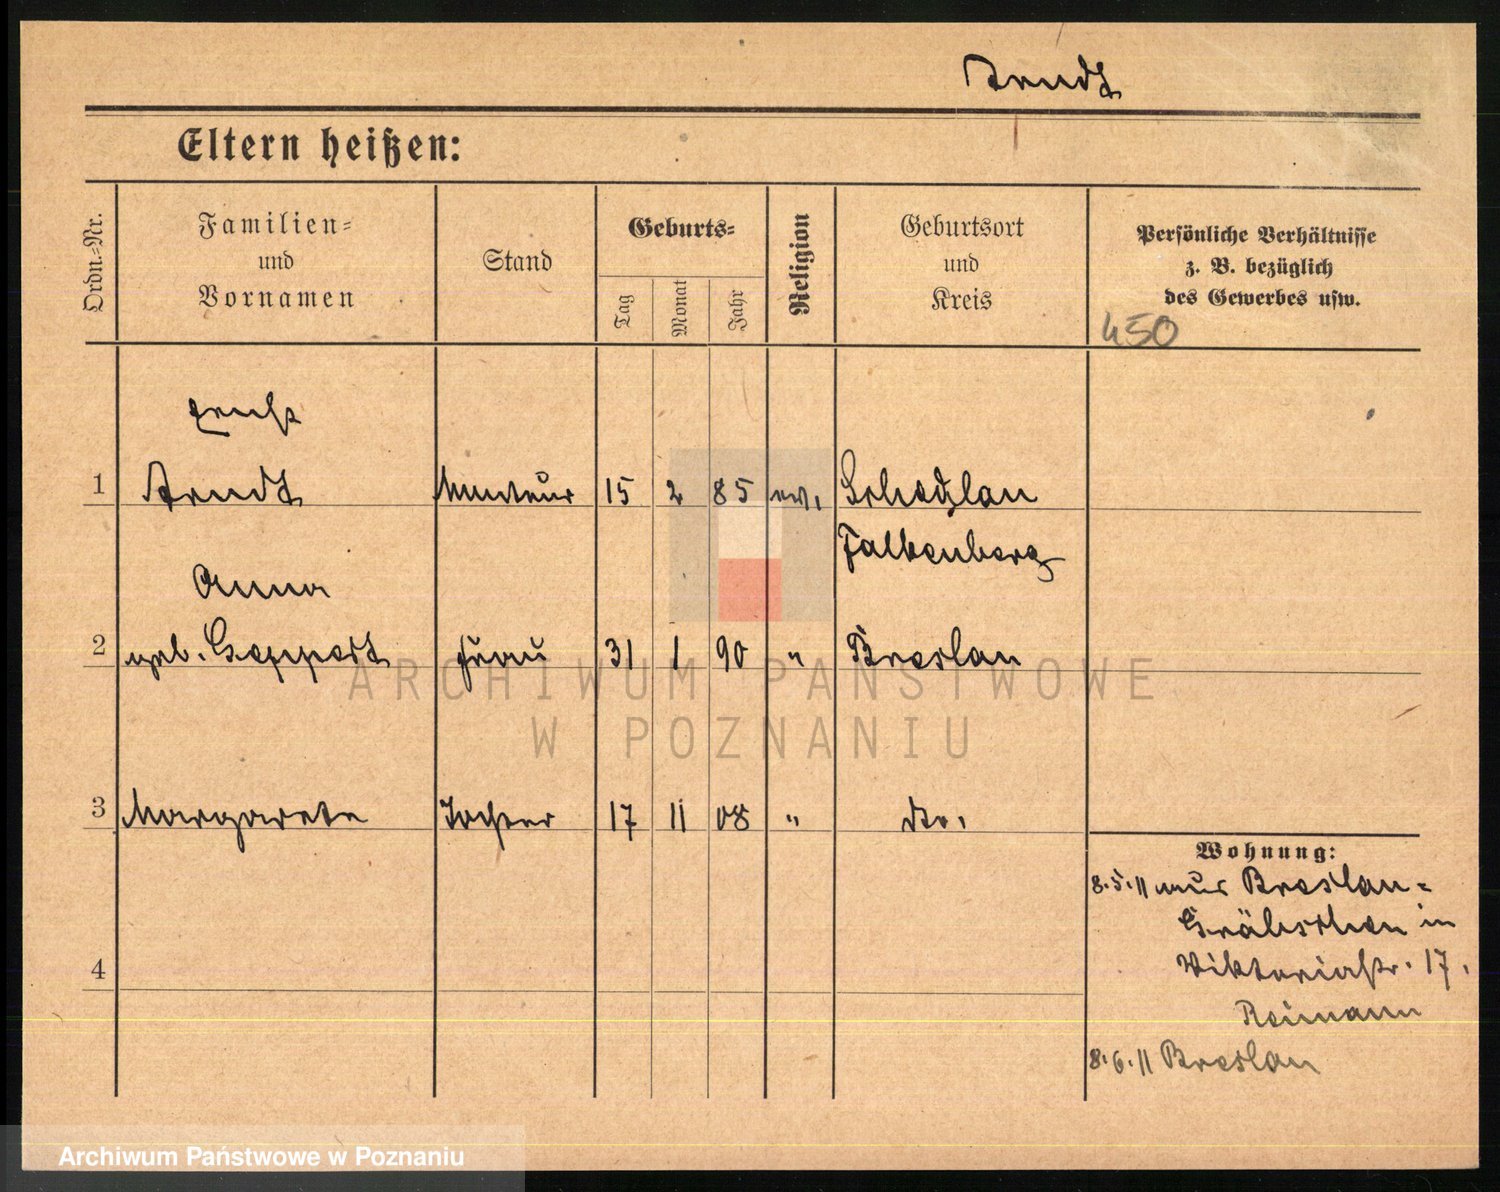 Arndt
Eltern heißen:
Ordn.-Nr.
Familien-
und
Vornamen
Stand
Geburts-
Tag
Monat
Jahr
Religion
Geburtsort
und
Kreis
Persönliche Verhältnisse
z. B. bezüglich
des Gewerbes usw.
450
Ernst
1 Arndt Monteur 15 2 85 ev.
Falkenberg
Anna
2 geb. Geppert Frau 31 1 90 " Breslau
3 Margarete Tochter 17 11 08 " do.
4
Wohnung:
8.5.11 aus Breslau-
Gräbschen in
Viktoriastr. 17.
Reimann
8.6.11 Breslau
ARCHIWUM PAŃSTWOWE
W POZNANIU
Archiwum Państwowe w Poznaniu